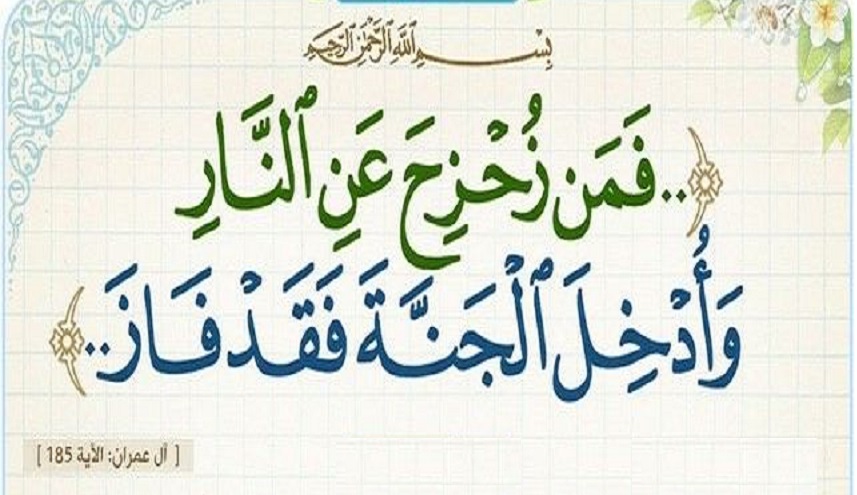 بِسْمِ اللَّهِ الرَّحْمَٰنِ الرَّحِيمِ
﴿..فَمَن زُحْزِحَ عَنِ ٱلنَّارِ
وَأُدْخِلَ ٱلْجَنَّةَ فَقَدْ فَازَ..﴾
[ آل عمران: الأية 185 ]